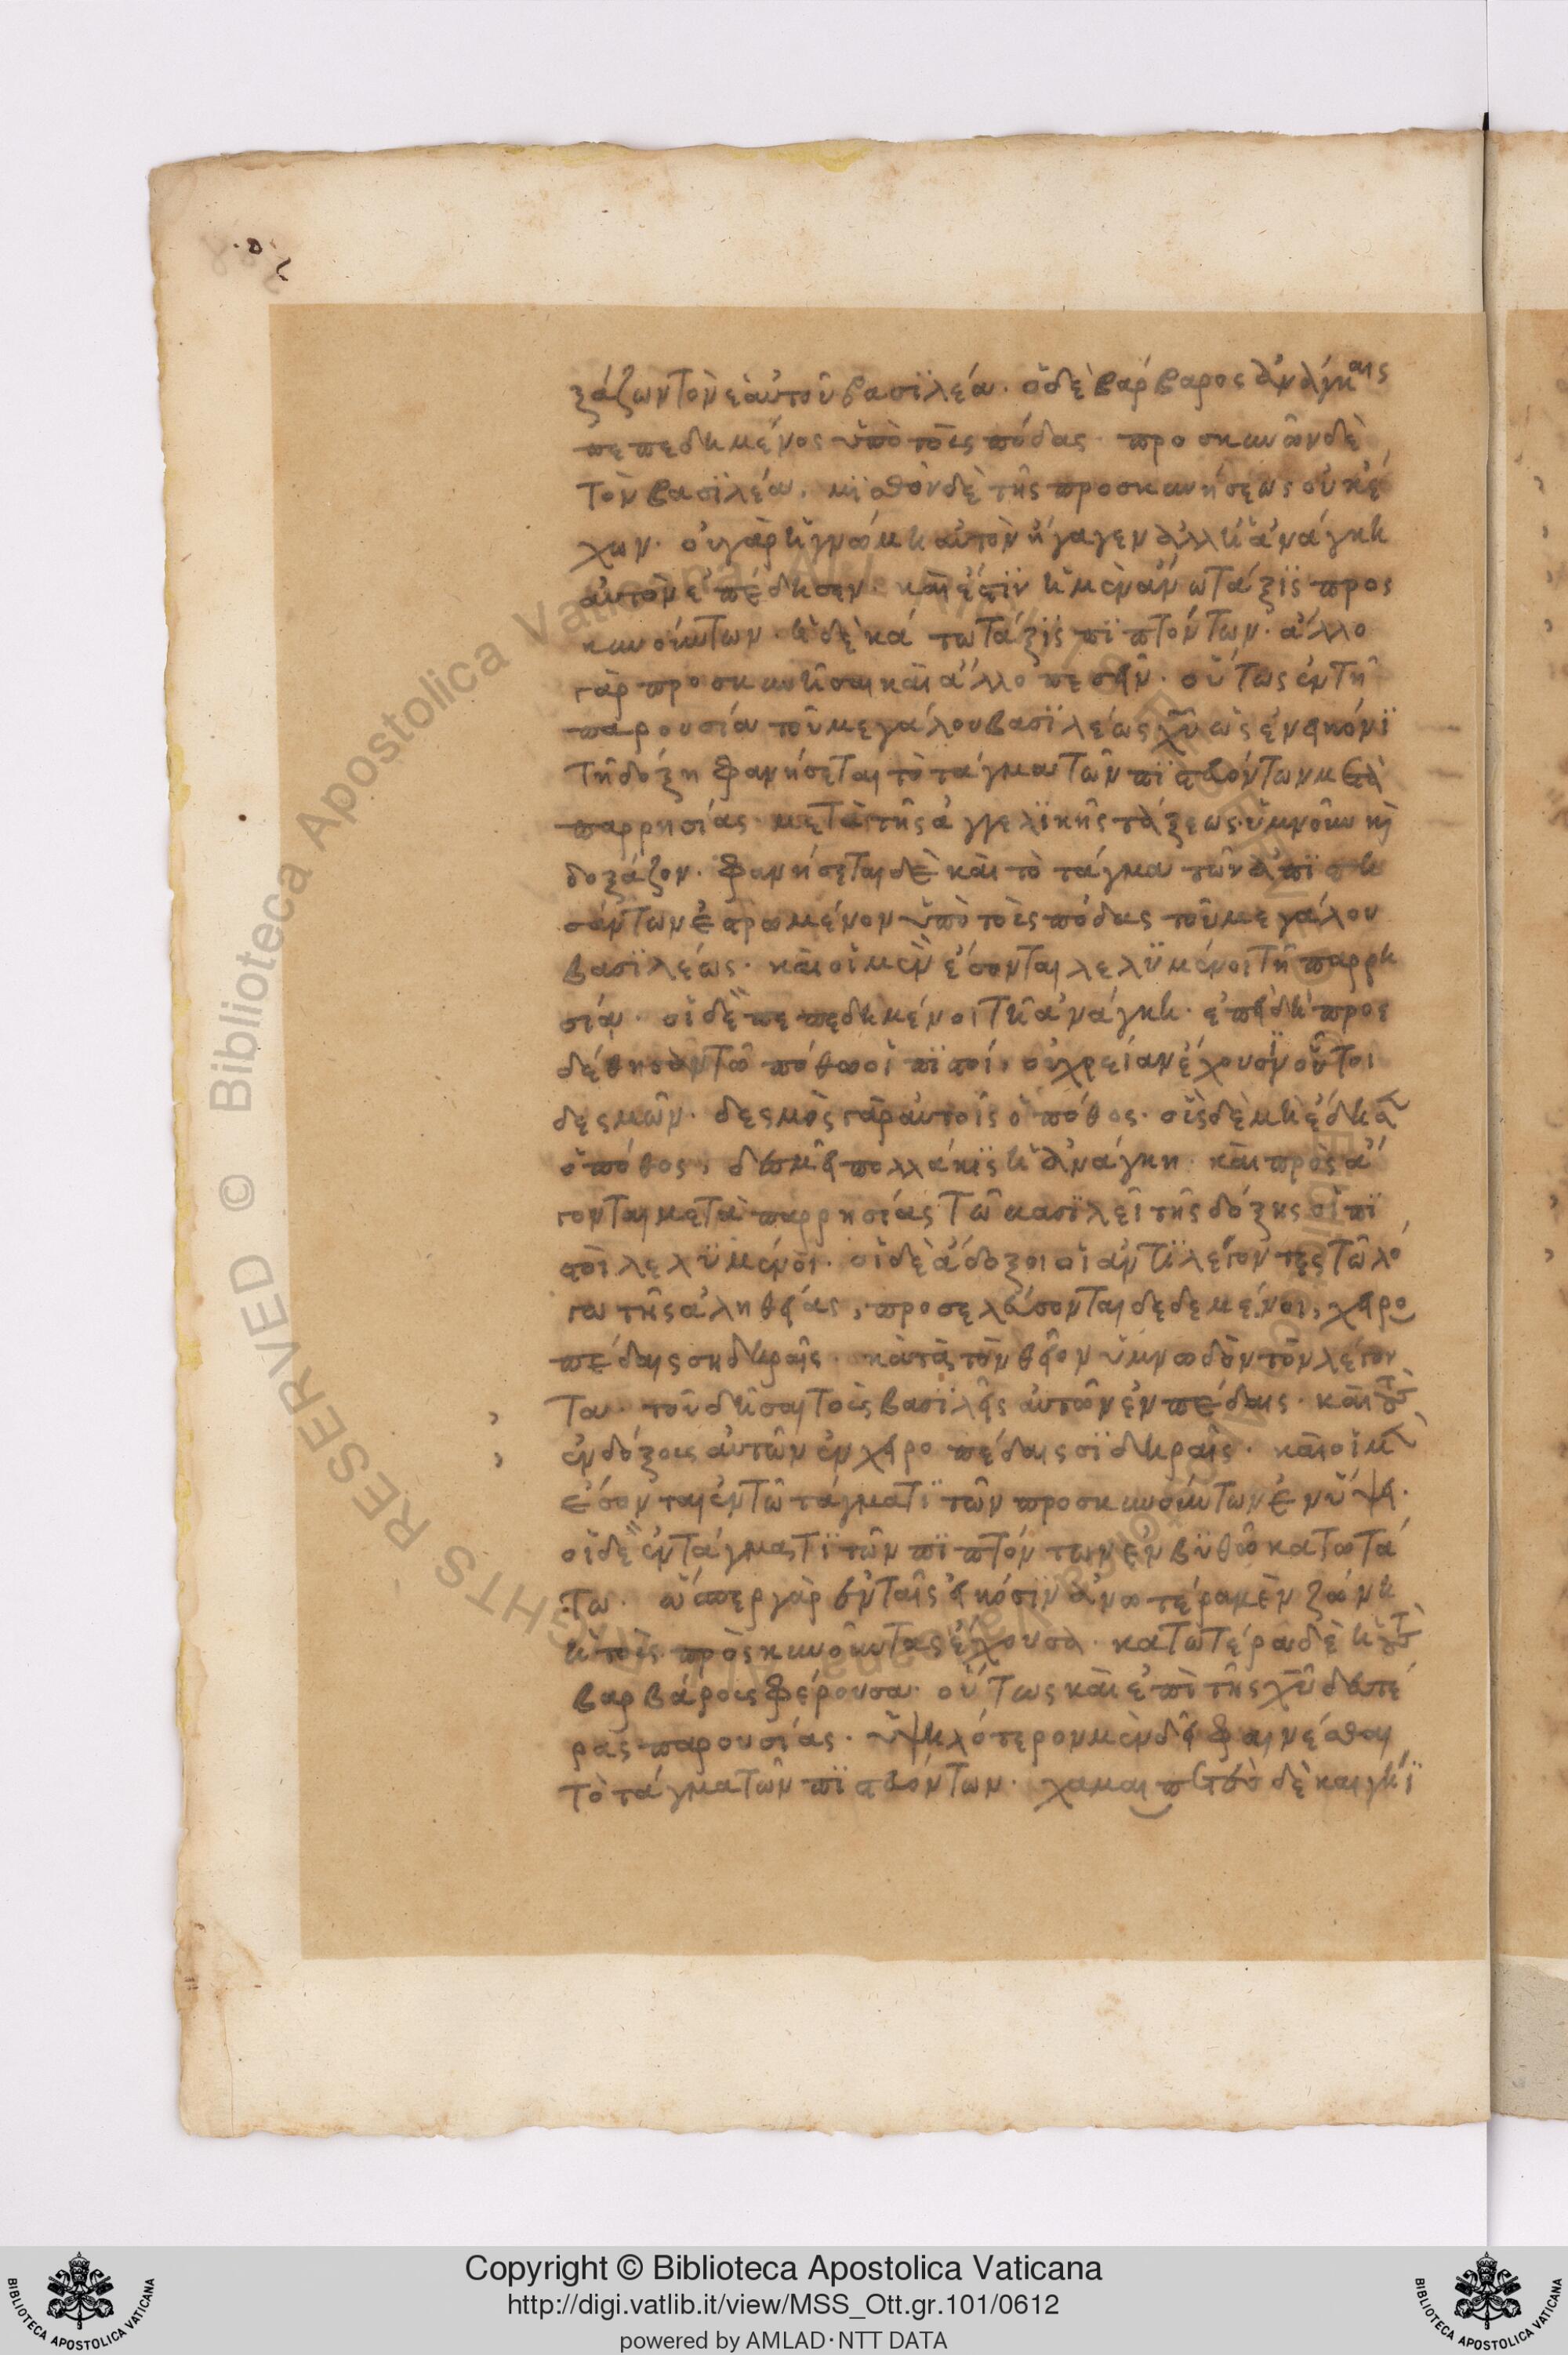 ξάζων τὸν ἑαυτοῦ βασϊλέα. ὁ δὲ βάρβαρος ἀνάγκαις
πεπεδημένος ὑπὸ τοὺς πόδας. προσκυνῶν δὲ
τὸν βασϊλέα, μϊσθὸν δὲ τῆς προσκυνήσεως οὐκ έ
χων. οὐ γὰρ ἡ γνώμη αὐτὸν ἤγαγεν ἀλλ' ἡ ἀνάγκη
αὐτὸν ἐπέδησεν. καὶ ἔστϊν ἡ μὲν ἀνω τάξϊς προς
κυνούντων. ἡ δὲ κάτω τάξϊς πϊπτόντων. ἄλλο
γὰρ προσκυνῆσαι καὶ ἄλλο πεσεῖν. οὕτως ἐν τῆ
παρουσία τοῦ μεγάλου βασϊλέως χῦ ὡς ἐν εἰκόνϊ
τῆ δόξη φανήσεται τὸ τάγμα τῶν πϊστῶν τῶν μετὰ
παρρησίας μετὰ τῆς ἀγγελϊκῆς τάξεως ὑμνοῦν κὶ
δοξάζον. φανήσεται δὲ καὶ τὸ τάγμα τῶν ἀπϊστη
σάντων ἐρρωμένον ὑπὸ τοὺς πόδας τοῦ μεγάλου
βασϊλέως. καὶ οἱ μὲν ἔσονται λελϋμένοι τῆ παρρη
σία. οἱ δὲ πεπεδημένοι τῆ ἀνάγκη. ἐπειδὴ προς
δέθησαν τῶ πόθω οἱ πϊστοί, οὐ χρείαν ἔχουσϊν οὗτοι
δεσμῶν. δεσμὸς γὰρ αὐτοῖς ὁ πόθος. οὓς δὲ μὴ ἔδησεν
ὁ πόθος, δεσμεῖ πολλάκϊς ἡ ἀνάγκη. καὶ προσά
γονται μετὰ παρρησίας τῶ βασϊλεῖ τῆς δόξης οἱ πϊ
στοὶ λελϋμένοι. οἱ δὲ ἄδοξοι οἱ ἀντϊλέγοντες τῶ λό
γω τῆς ἀληθείας, προσελεύσονται δεδεμένοι, χειρο
πέδαις σϊδηραῖς. κατὰ τὸν θεῖον ὑμνωδὸν τὸν λέγον
τα. τοῦ δῆσαι τοὺς βασϊλεῖς αὐτῶν ἐν πέδαις. καὶ τοὺς
ἐνδόξους αὐτῶν ἐν χειροπέδαις σϊδηραῖς. καὶ οἱ μὲν
ἔσονται ἐν τῶ τάγματϊ τῶν προσκυνούντων ἐν ὕψει.
οἱ δὲ ἐν τάγματϊ τῶν πϊπτόντων ἐν βϋθῶ κατωτά
τω. ὥσπερ γὰρ ἐν ταῖς εἰκόσϊν ἀνωτέρα μὲν ζώνη
ἡ τοὺς προσκυνοῦντας ἔχουσα. κατωτέρα δὲ ἡ τοὺς
βαρβάρους φέρουσα. οὕτως καὶ ἐπὶ τῆς χῦ δευτέ
ρας παρουσίας. ὑψηλότερον μὲν δεῖ φαινέσθαι
τὸ τάγμα τῶν πϊστῶν τῶν. χαμαιπετὲς δὲ καὶ γήϊ
Copyright © Biblioteca Apostolica Vaticana
http://digi.vatlib.it/view/MSS_Ott.gr.101/0612
powered by AMLAD·NTT DATA